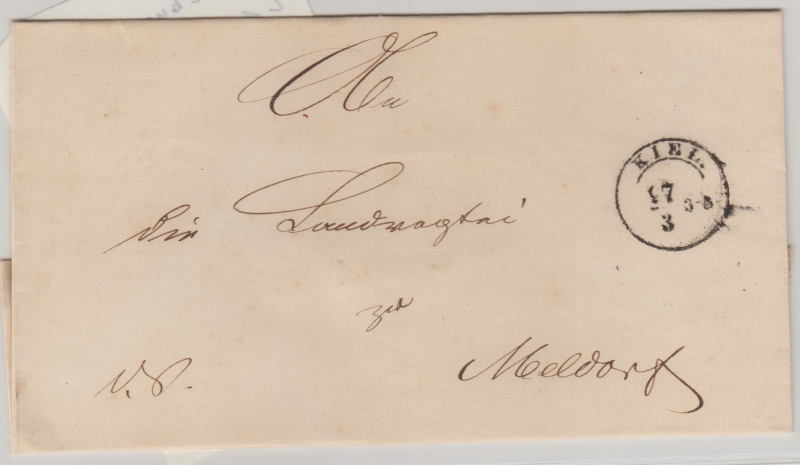 An
die Landvogtei
zu
Meldorf
KIEL.
3